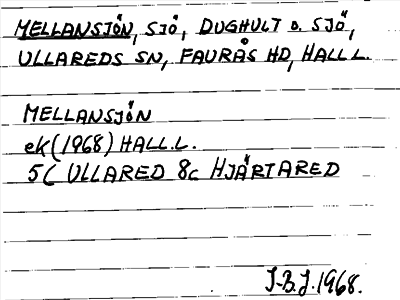 MELLANSJÖN, SJÖ, DUGHULT o. SJÖ,
ULLAREDS SN, FAURÅS HD, HALL L.
MELLANSJÖN
ek (1968) HALL.L.
5C ULLARED 8c HJÄRTARED
J-B.J. 1968.